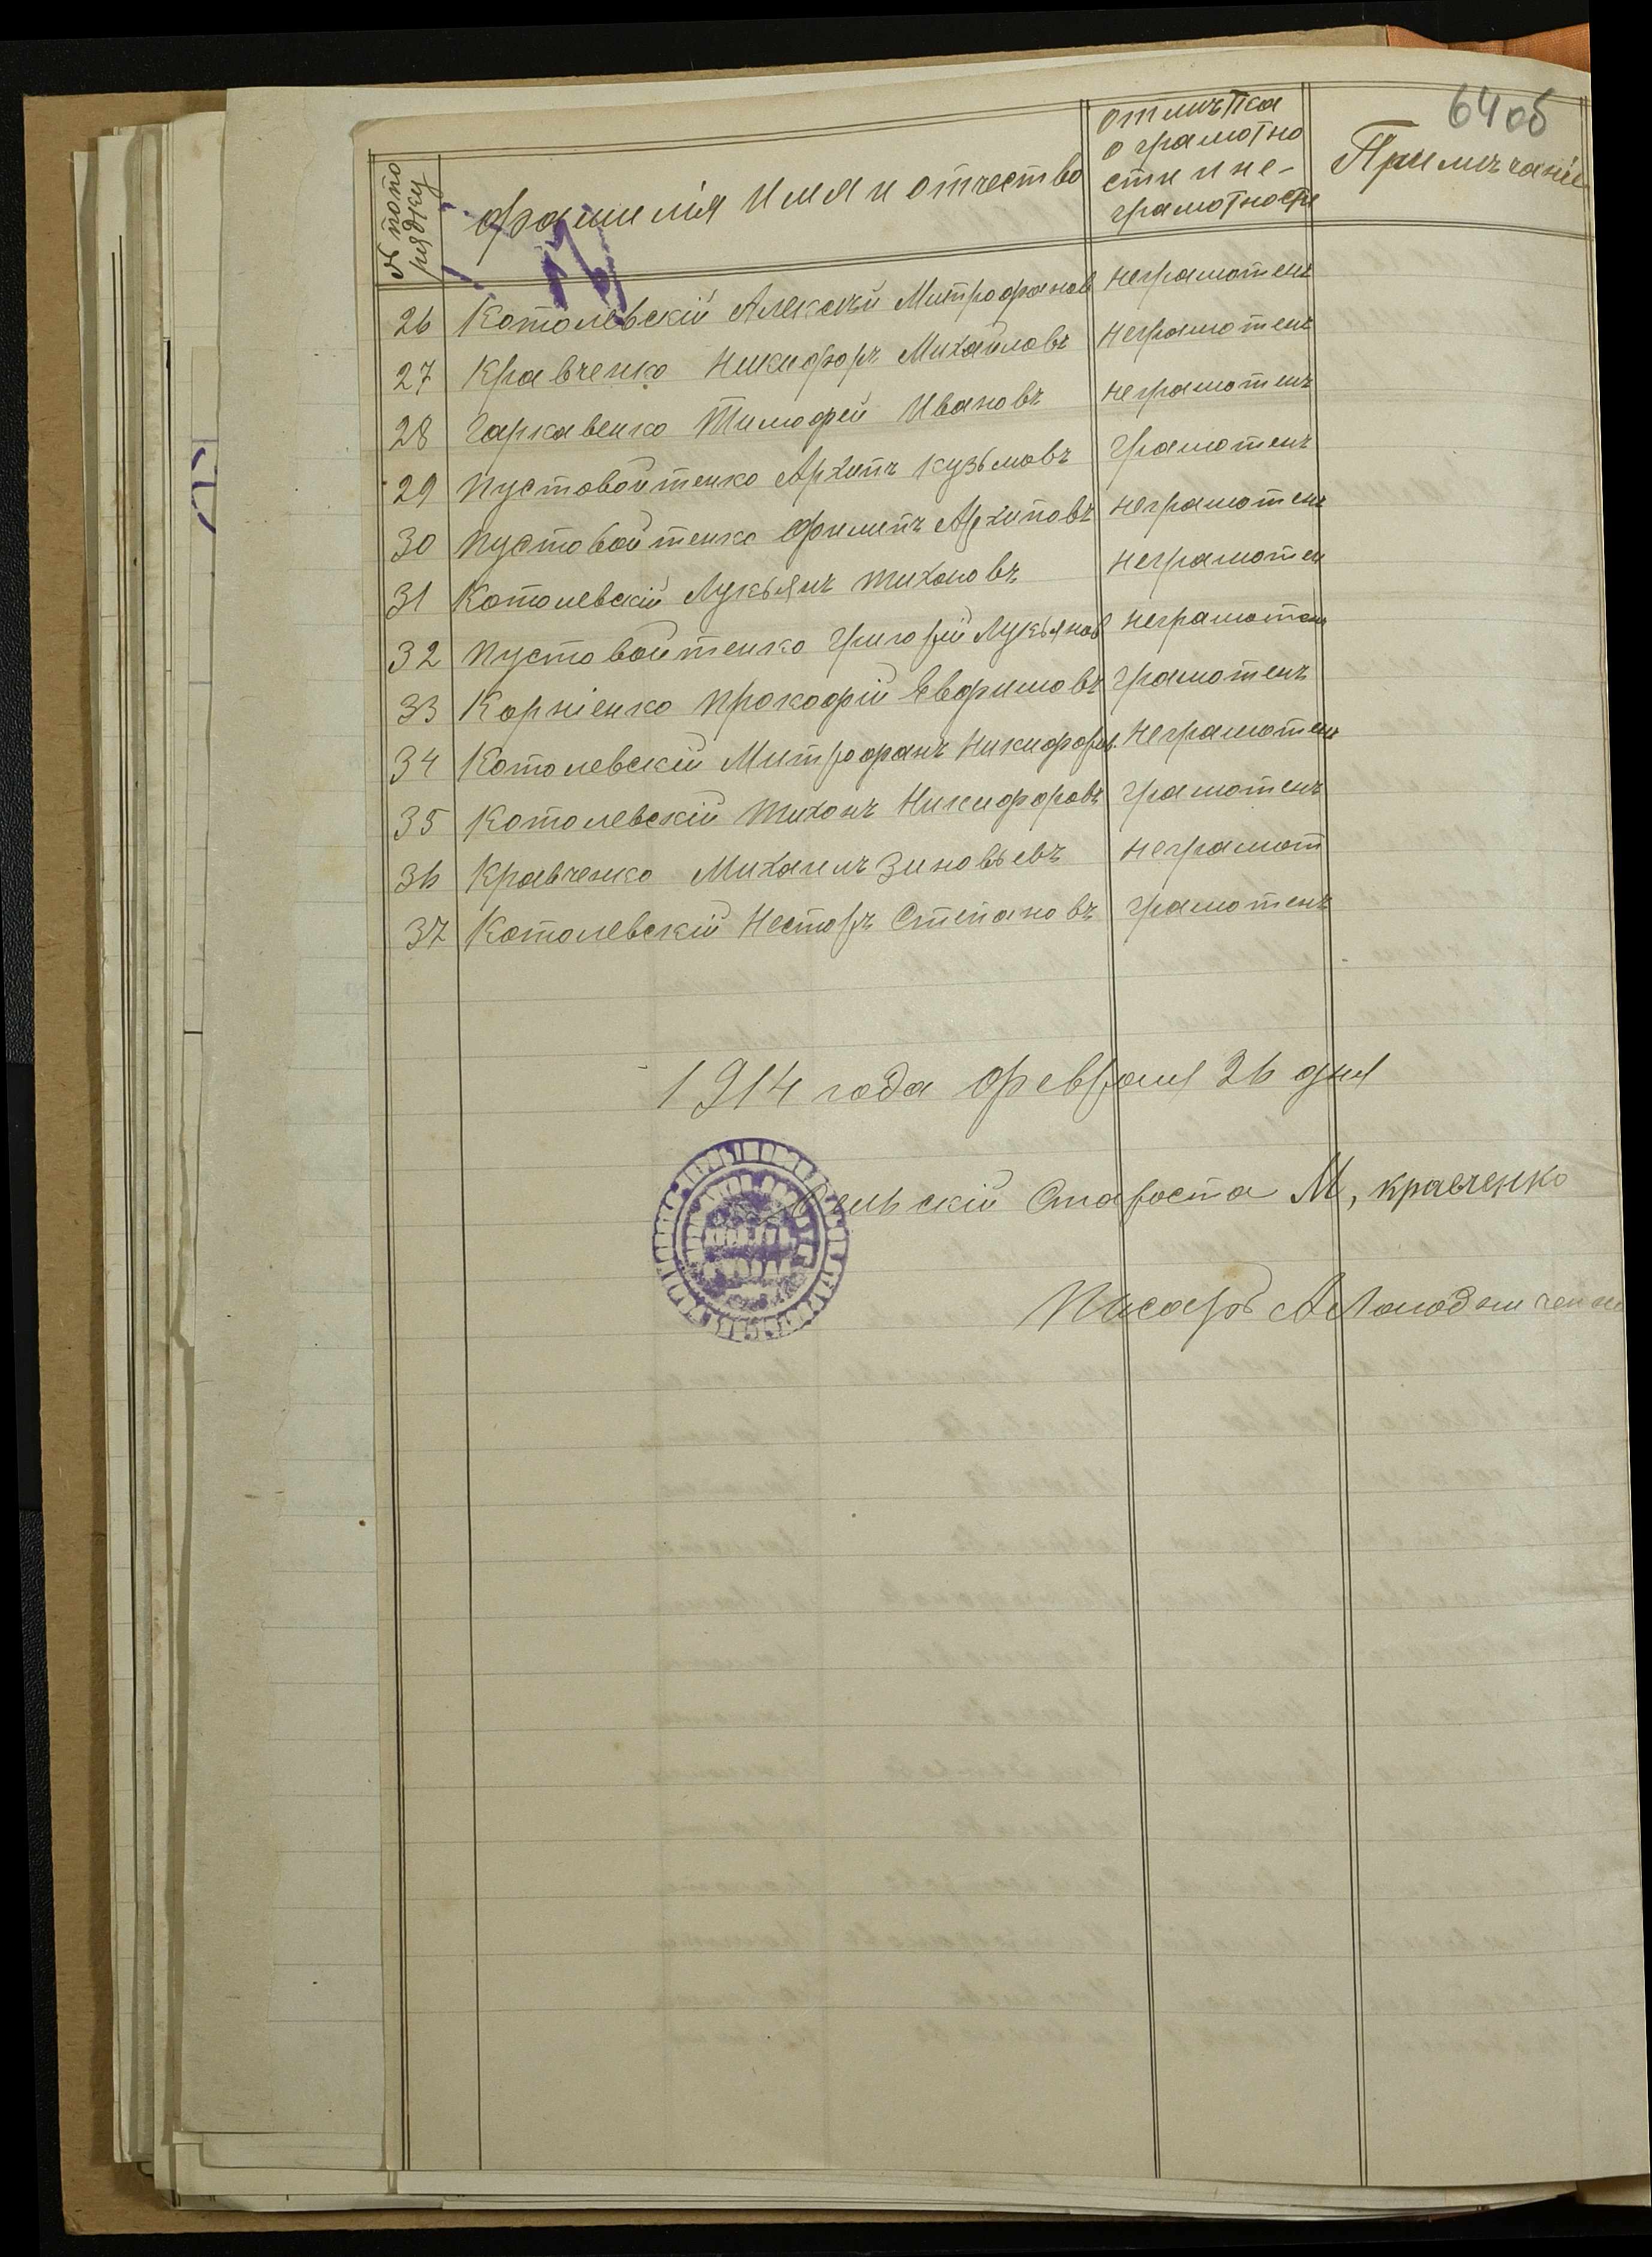 64 об
№ по по
рядку
фамилія имя и отчество
отмѣтка
о грамотно
сти и не-
грамотности
Примѣчаніе
26 Котолевскій Алексѣй Митрофанов неграмотенъ
27 Кравченко Никифоръ Михайловъ неграмотенъ
28 Гаркавенко Тимофей Ивановъ неграмотенъ
29 Пустовойтенко Архипъ Кузьмовъ грамотенъ
30 Пустовойтенко Филипъ Архиповъ неграмотенъ
31 Котолевскій Лукьянъ Тихоновъ неграмотен
32 Пустовойтенко Григорій Лукьянов неграмотенъ
33 Корніенко Прокофій Евфимовъ грамотенъ
34 Котолевскій Митрофанъ Никифоров. неграмотенъ
35 Котолевскій Тихонъ Никифоровъ грамотенъ
36 Кравченко Михаилъ Зиновьевъ неграмот
37 Котолевскій Несторъ Степановъ грамотенъ
1914 года февраля 26 дня
Сельскій Староста М, кравченко
Писарь А